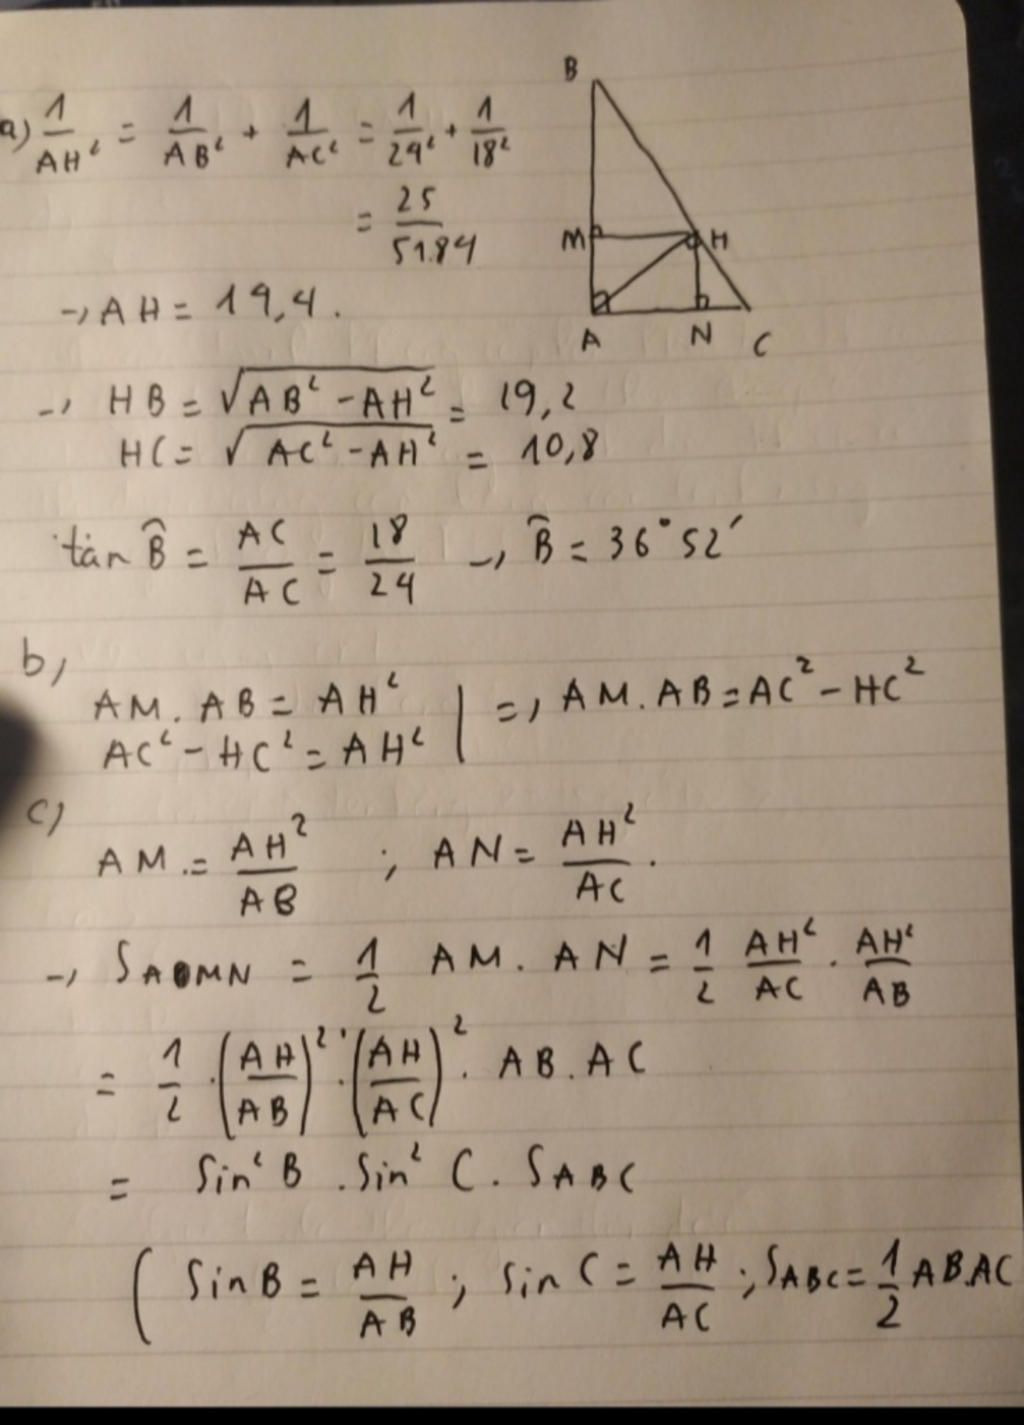 a) 1/AH² = 1/AB² + 1/AC² = 1/24² + 1/18²
= 25/5184
→ AH = 14,4.
→ HB = √(AB² - AH²) = 19,2
HC = √(AC² - AH²) = 10,8
tan B̂ = AC/AC = 18/24 → B̂ = 36°52'
b,
AM. AB = AH² | =, AM. AB = AC² - HC²
AC² - HC² = AH²
c)
AM. = AH²/AB ; AN = AH²/AC.
→ SAMN = 1/2 AM. AN = 1/2 AH²/AC . AH²/AB
= 1/2 .(AH/AB)² . (AH/AC)² . AB. AC
= Sin² B . Sin² C. SABC
( Sin B = AH/AB ; Sin C = AH/AC ; SABC = 1/2 AB.AC
B
M H
A N C